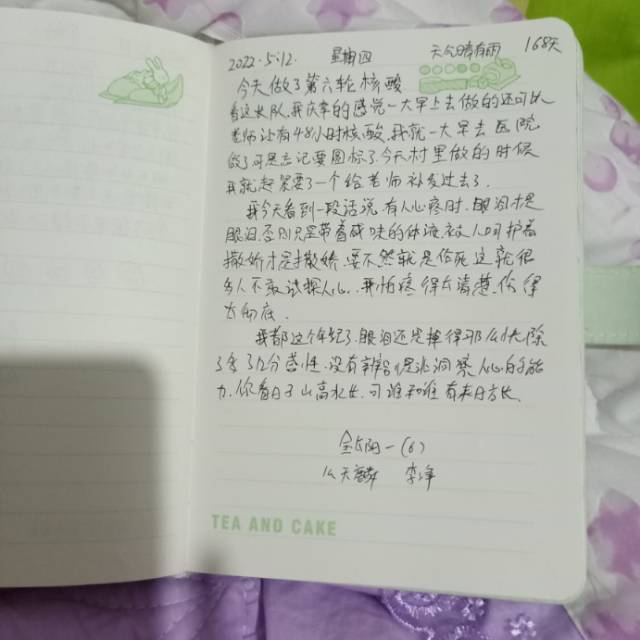 2022.5.12. 星期四 天气晴有雨 168天
今天做了第六轮核酸
看这长队,我庆幸的感觉一大早上去做的还可以
老师让有48小时核酸,我就一大早去医院
做了可是忘记要图标了.今天村里做的时候
我就赶紧要了一个给老师补发过去了.
我今天看到一段话说.有人心疼时.眼泪才是
眼泪.否则只是带着咸味的体液.被人呵护着
撒娇才是撒娇.要不然就是作死.这就很
多人不敢试探人心.我怕疼得太清楚.伤得
太彻底.
我都这个年纪了.眼泪还是掉得那么快.除
了多了几分苦性.没有辨别是非洞察人心的能
力.你看日子山高水长.可谁和谁有来日方长
TEA AND CAKE